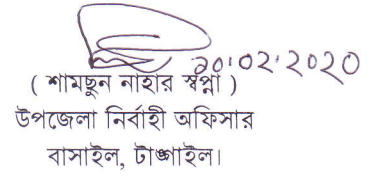 ২০.০২.২০২০
( শামছুন নাহার স্বপ্না )
উপজেলা নির্বাহী অফিসার
বাসাইল, টাঙ্গাইল।